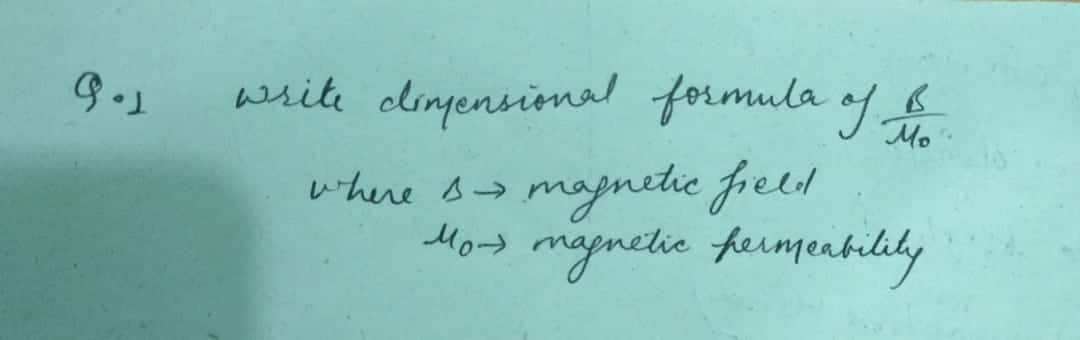 Q.1 write dimensional formula of B/μ₀
where B → magnetic field
μ₀ → magnetic permeability